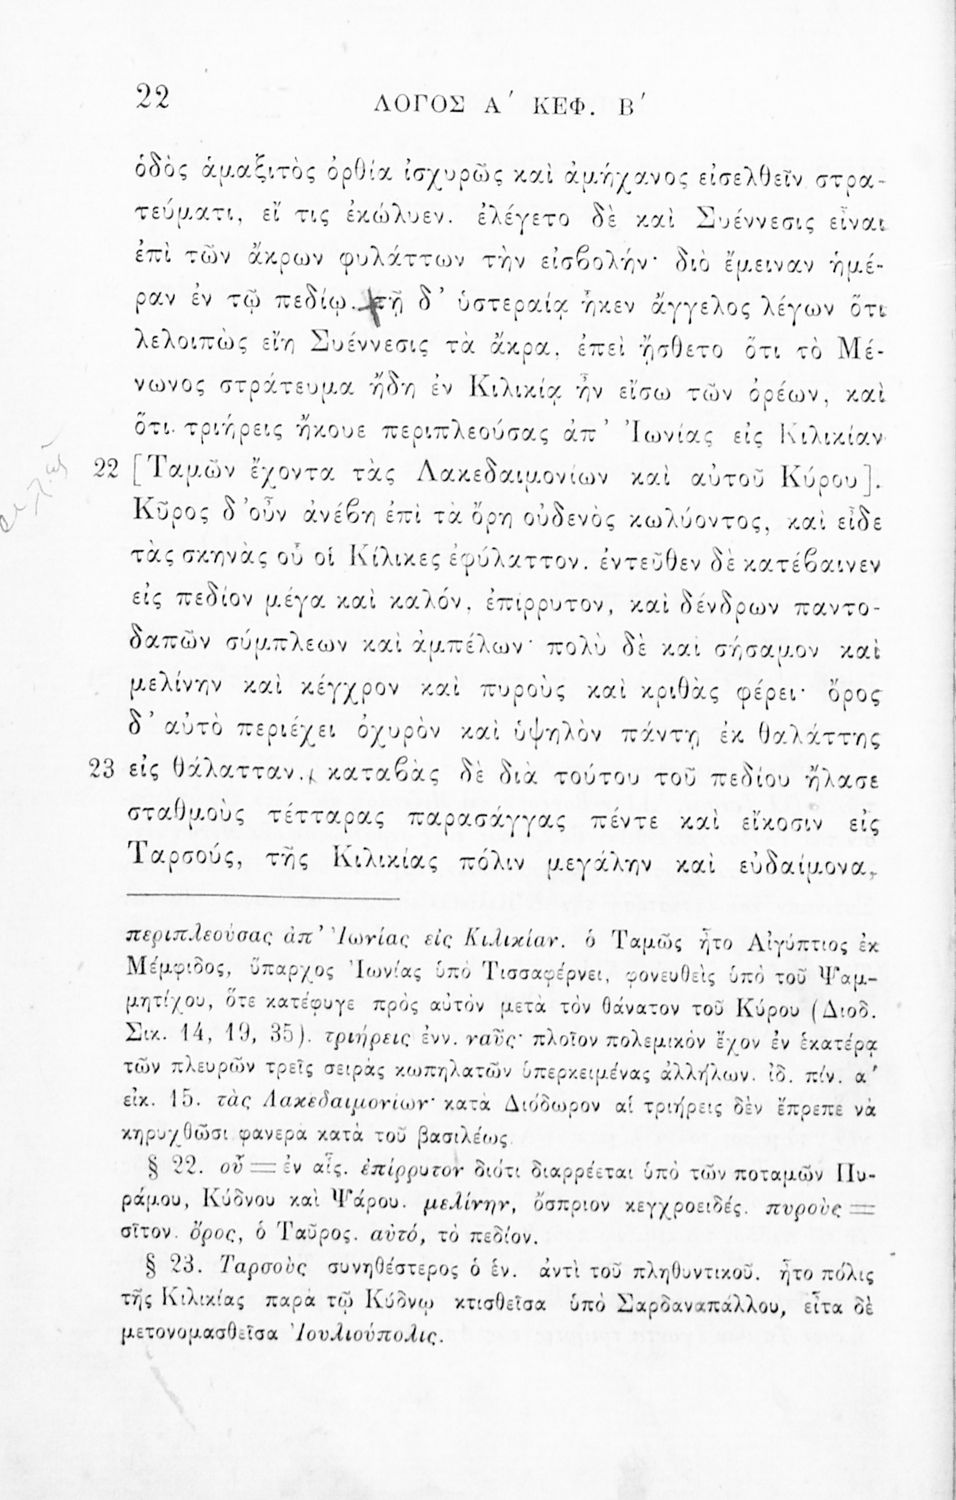 22
ΛΟΓΟΣ Α΄ ΚΕΦ. Β΄
ὁδὸς ἁμαξιτὸς ὀρθία ἰσχυρῶς καὶ ἀμήχανος εἰσελθεῖν στρα-
τεύματι, εἴ τις ἐκώλυεν. ἐλέγετο δὲ καὶ Συέννεσις εἶναι
ἐπὶ τῶν ἄκρων φυλάττων τὴν εἰσβολήν· διὸ ἔμειναν ἡμέ-
ραν ἐν τῷ πεδίῳ. τῇ δ’ ὑστεραίᾳ ἧκεν ἄγγελος λέγων ὅτι
λελοιπὼς εἴη Συέννεσις τὰ ἄκρα, ἐπεὶ ᾔσθετο ὅτι τὸ Μέ-
νωνος στράτευμα ἤδη ἐν Κιλικίᾳ ἦν εἴσω τῶν ὀρέων, καὶ
ὅτι τριήρεις ἤκουε περιπλεούσας ἀπ’ Ἰωνίας εἰς Κιλικίαν
22 [Ταμῶν ἔχοντα τὰς Λακεδαιμονίων καὶ αὐτοῦ Κύρου].
Κῦρος δ’οὖν ἀνέβη ἐπὶ τὰ ὄρη οὐδενὸς κωλύοντος, καὶ εἶδε
τὰς σκηνὰς οὗ οἱ Κίλικες ἐφύλαττον. ἐντεῦθεν δὲ κατέβαινεν
εἰς πεδίον μέγα καὶ καλόν, ἐπίρρυτον, καὶ δένδρων παντο-
δαπῶν σύμπλεων καὶ ἀμπέλων· πολὺ δὲ καὶ σήσαμον καὶ
μελίνην καὶ κέγχρον καὶ πυροὺς καὶ κριθὰς φέρει· ὄρος
δ’ αὐτὸ περιέχει ὀχυρὸν καὶ ὑψηλὸν πάντῃ ἐκ θαλάττης
23 εἰς θάλατταν. καταβὰς δὲ διὰ τούτου τοῦ πεδίου ἤλασε
σταθμοὺς τέτταρας παρασάγγας πέντε καὶ εἴκοσιν εἰς
Ταρσούς, τῆς Κιλικίας πόλιν μεγάλην καὶ εὐδαίμονα,
περιπλεούσας ἀπ’ Ἰωνίας εἰς Κιλικίαν. ὁ Ταμῶς ἦτο Αἰγύπτιος ἐκ
Μέμφιδος, ὕπαρχος Ἰωνίας ὑπὸ Τισσαφέρνει, φονευθεὶς ὑπὸ τοῦ Ψαμ-
μητίχου, ὅτε κατέφυγε πρὸς αὐτὸν μετὰ τὸν θάνατον τοῦ Κύρου (Διοδ.
Σικ. 14, 19, 35). τριήρεις ἐνν. ναῦς· πλοῖον πολεμικὸν ἔχον ἐν ἑκατέρᾳ
τῶν πλευρῶν τρεῖς σειρὰς κωπηλατῶν ὑπερκειμένας ἀλλήλων. ἰδ. πίν. α΄
εἰκ. 15. τὰς Λακεδαιμονίων· κατὰ Διόδωρον αἱ τριήρεις δὲν ἔπρεπε νὰ
κηρυχθῶσι φανερὰ κατὰ τοῦ βασιλέως.
§ 22. οὗ = ἐν αἷς. ἐπίρρυτον διότι διαρρέεται ὑπὸ τῶν ποταμῶν Πυ-
ράμου, Κύδνου καὶ Ψάρου. μελίνην, ὄσπριον κεγχροειδές. πυροὺς =
σῖτον. ὄρος, ὁ Ταῦρος. αὐτό, τὸ πεδίον.
§ 23. Ταρσοὺς συνηθέστερος ὁ ἑν. ἀντὶ τοῦ πληθυντικοῦ. ἦτο πόλις
τῆς Κιλικίας παρὰ τῷ Κύδνῳ κτισθεῖσα ὑπὸ Σαρδαναπάλλου, εἶτα δὲ
μετονομασθεῖσα Ἰουλιούπολις.